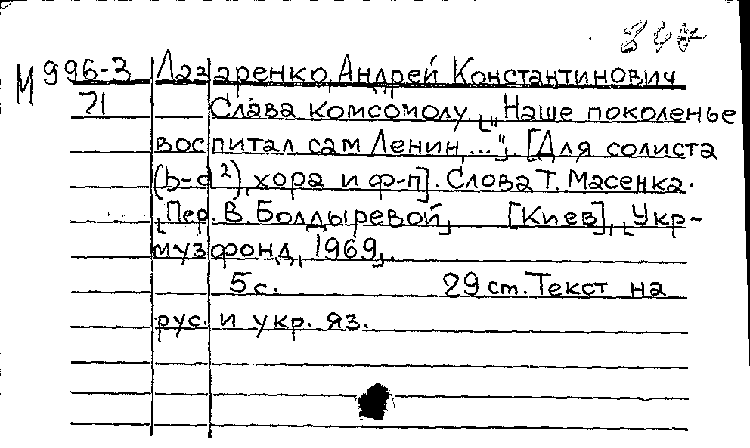 М 996-3 Лазаренко, Андрей Константинович
21 Слава комсомолу ["Наше поколенье
воспитал сам Ленин,..."]. [Для солиста
(b-d²), хора и ф-п]. Слова Т. Масенка.
[Пер. В. Болдыревой], [Киев], [Укр-
музфонд, 1969].
5 с. 29 ст. Текст на
рус. и укр. яз.